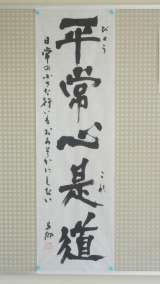 平常心是道
びょう
これ
日常のふつう行いもおろそかにしない